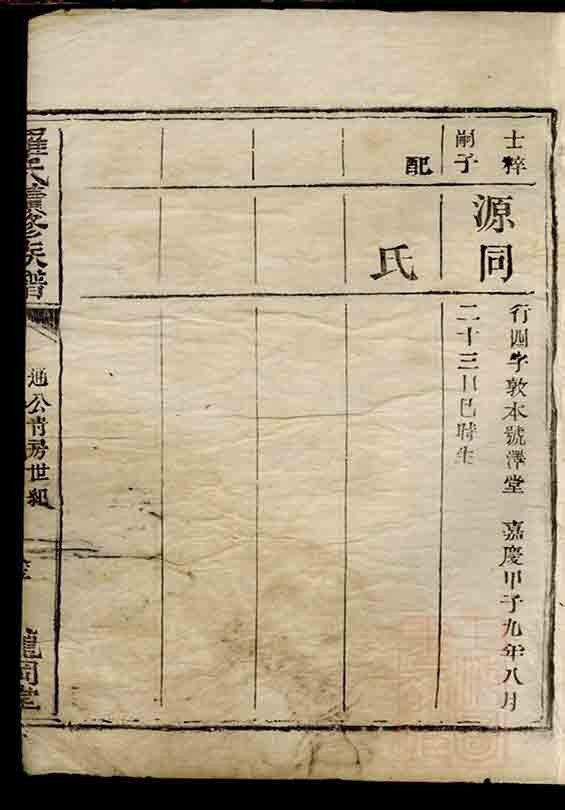 士粹
嗣子
源同
行四字敦本號澤堂 嘉慶甲子九年八月
二十三日巳時生
配
氏
羅氏續修族譜
通公青房世紀